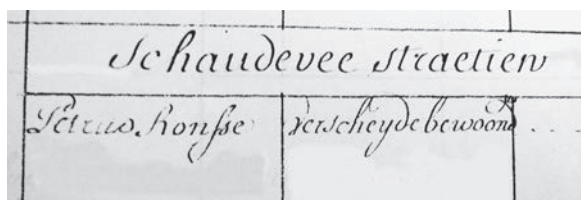 Schaudevee straetien
Petrus Ronsse verscheyde bewoonrs